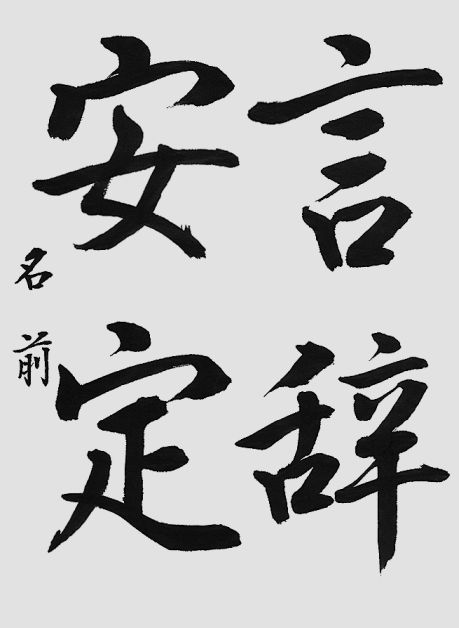 言辞
安定
名前